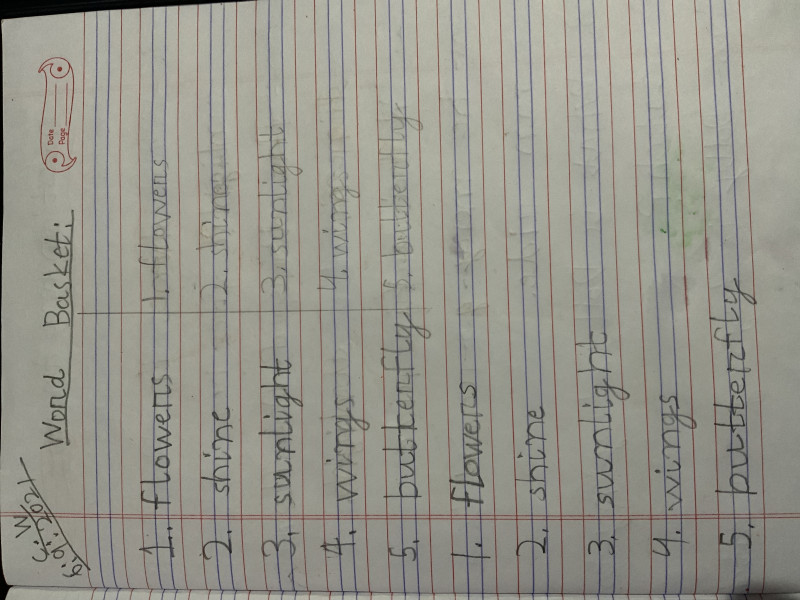 C.W
6.9.2021
Word Basket:
Date
Page
1. flowers 1. flowers
2. shine 2. shine
3. sunlight 3. sunlight
4. wings 4. wings
5. butterfly 5. butterfly
1. flowers
2. shine
3. sunlight
4. wings
5. butterfly